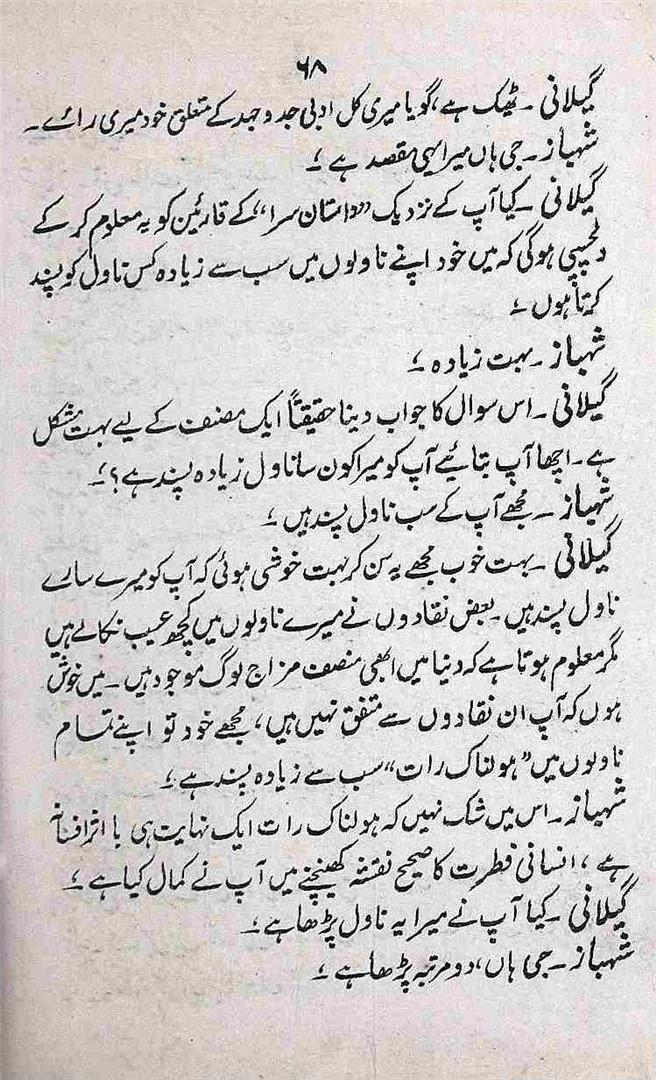 ۶۸
گیلانی ۔ ٹھیک ہے، گویا میری کل ادبی جدوجہد کے متعلق خود میری رائے ۔
شہباز ۔ جی ہاں میرا یہی مقصد ہے ؛
گیلانی ۔ کیا آپ کے نزدیک ”داستان سرا“ کے قارئین کو یہ معلوم کر کے
دلچسپی ہوگی کہ میں خود اپنے ناولوں میں سب سے زیادہ کس ناول کو پسند
کرتا ہوں ؛
شہباز ۔ بہت زیادہ ؛
گیلانی ۔ اس سوال کا جواب دینا حقیقتاً ایک مصنف کے لیے بہت مشکل
ہے ۔ اچھا آپ بتائیے آپ کو میرا کون سا ناول زیادہ پسند ہے ؟ ؛
شہباز ۔ مجھے آپ کے سب ناول پسند ہیں ؛
گیلانی ۔ بہت خوب مجھے یہ سن کر بہت خوشی ہوئی کہ آپ کو میرے سارے
ناول پسند ہیں ۔ بعض نقادوں نے میرے ناولوں میں کچھ عیب نکالے ہیں
مگر معلوم ہوتا ہے کہ دنیا میں ابھی منصف مزاج لوگ موجود ہیں ۔ میں خوش
ہوں کہ آپ ان نقادوں سے متفق نہیں ہیں ، مجھے خود تو اپنے تمام
ناولوں میں ”ہولناک رات“ سب سے زیادہ پسند ہے ؛
شہباز ۔ اس میں شک نہیں کہ ہولناک رات ایک نہایت ہی با اثر افسانہ
ہے ، انسانی فطرت کا صحیح نقشہ کھینچنے میں آپ نے کمال کیا ہے ؛
گیلانی ۔ کیا آپ نے میرا یہ ناول پڑھا ہے ؛
شہباز ۔ جی ہاں ، دو مرتبہ پڑھا ہے ؛